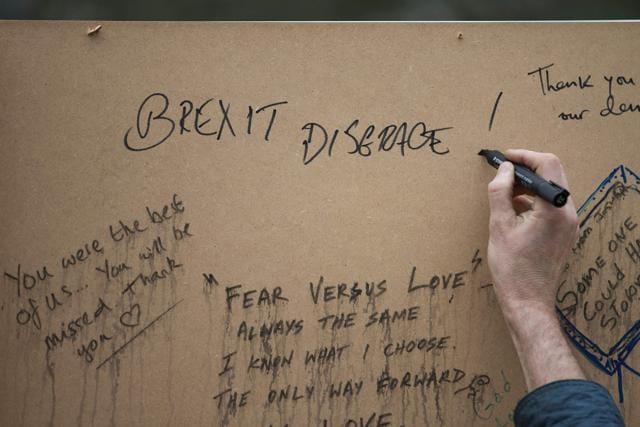 BREXIT DISGRACE !
Thank you
our dem
You were the best
of us... You will be
missed thank
you ♡
"FEAR VERSUS LOVE"
ALWAYS THE SAME
I KNOW WHAT I CHOOSE.
THE ONLY WAY FORWARD
LOVE.
God
SOME ONE
COULD HA
STOP